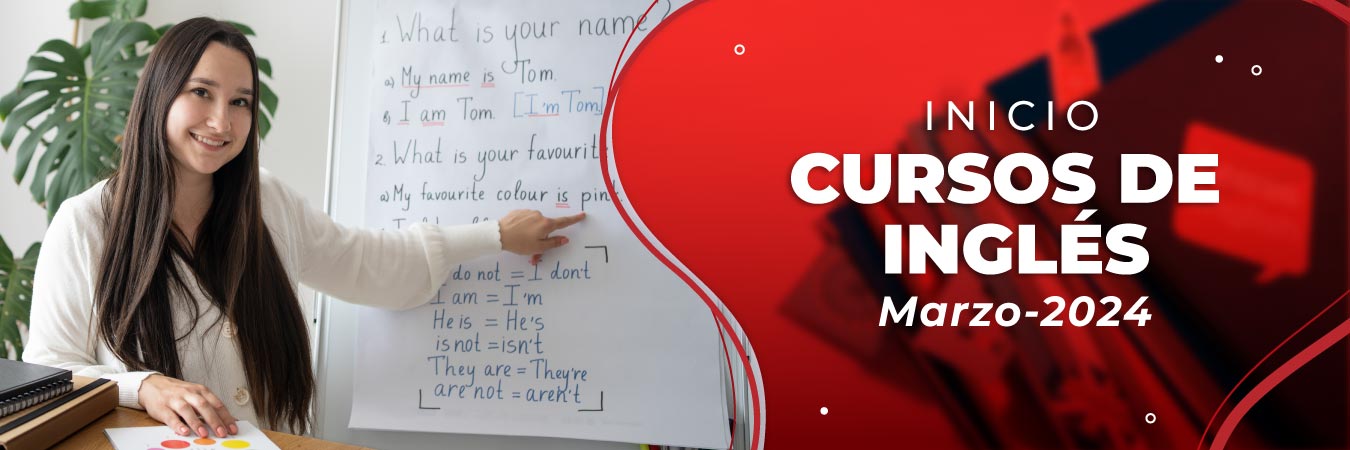 1. What is your name?
a) My name is Tom.
b) I am Tom. [I'm Tom]
2. What is your
a) My favourite colour is
do not = I don't
I am = I'm
He is = He's
is not = isn't
They are = They're
are not = aren't
INICIO
CURSOS DE
INGLÉS
Marzo-2024